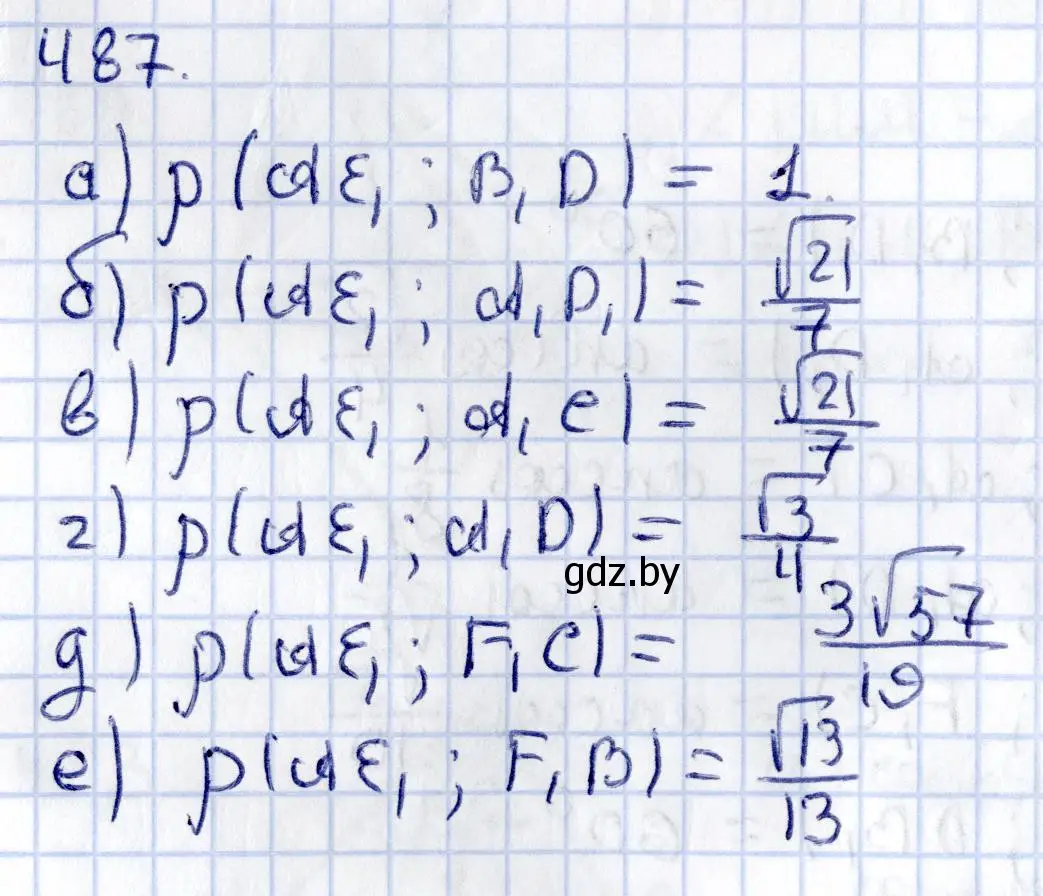 487.
а) ρ(AE₁; B₁D) = 1.
б) ρ(AE₁; A₁D₁) = √21/7
в) ρ(AE₁; A₁C) = √21/7
г) ρ(AE₁; A₁D) = √3/4
gdz.by
д) ρ(AE₁; F₁C) = 3√57/19
е) ρ(AE₁; F₁B) = √13/13